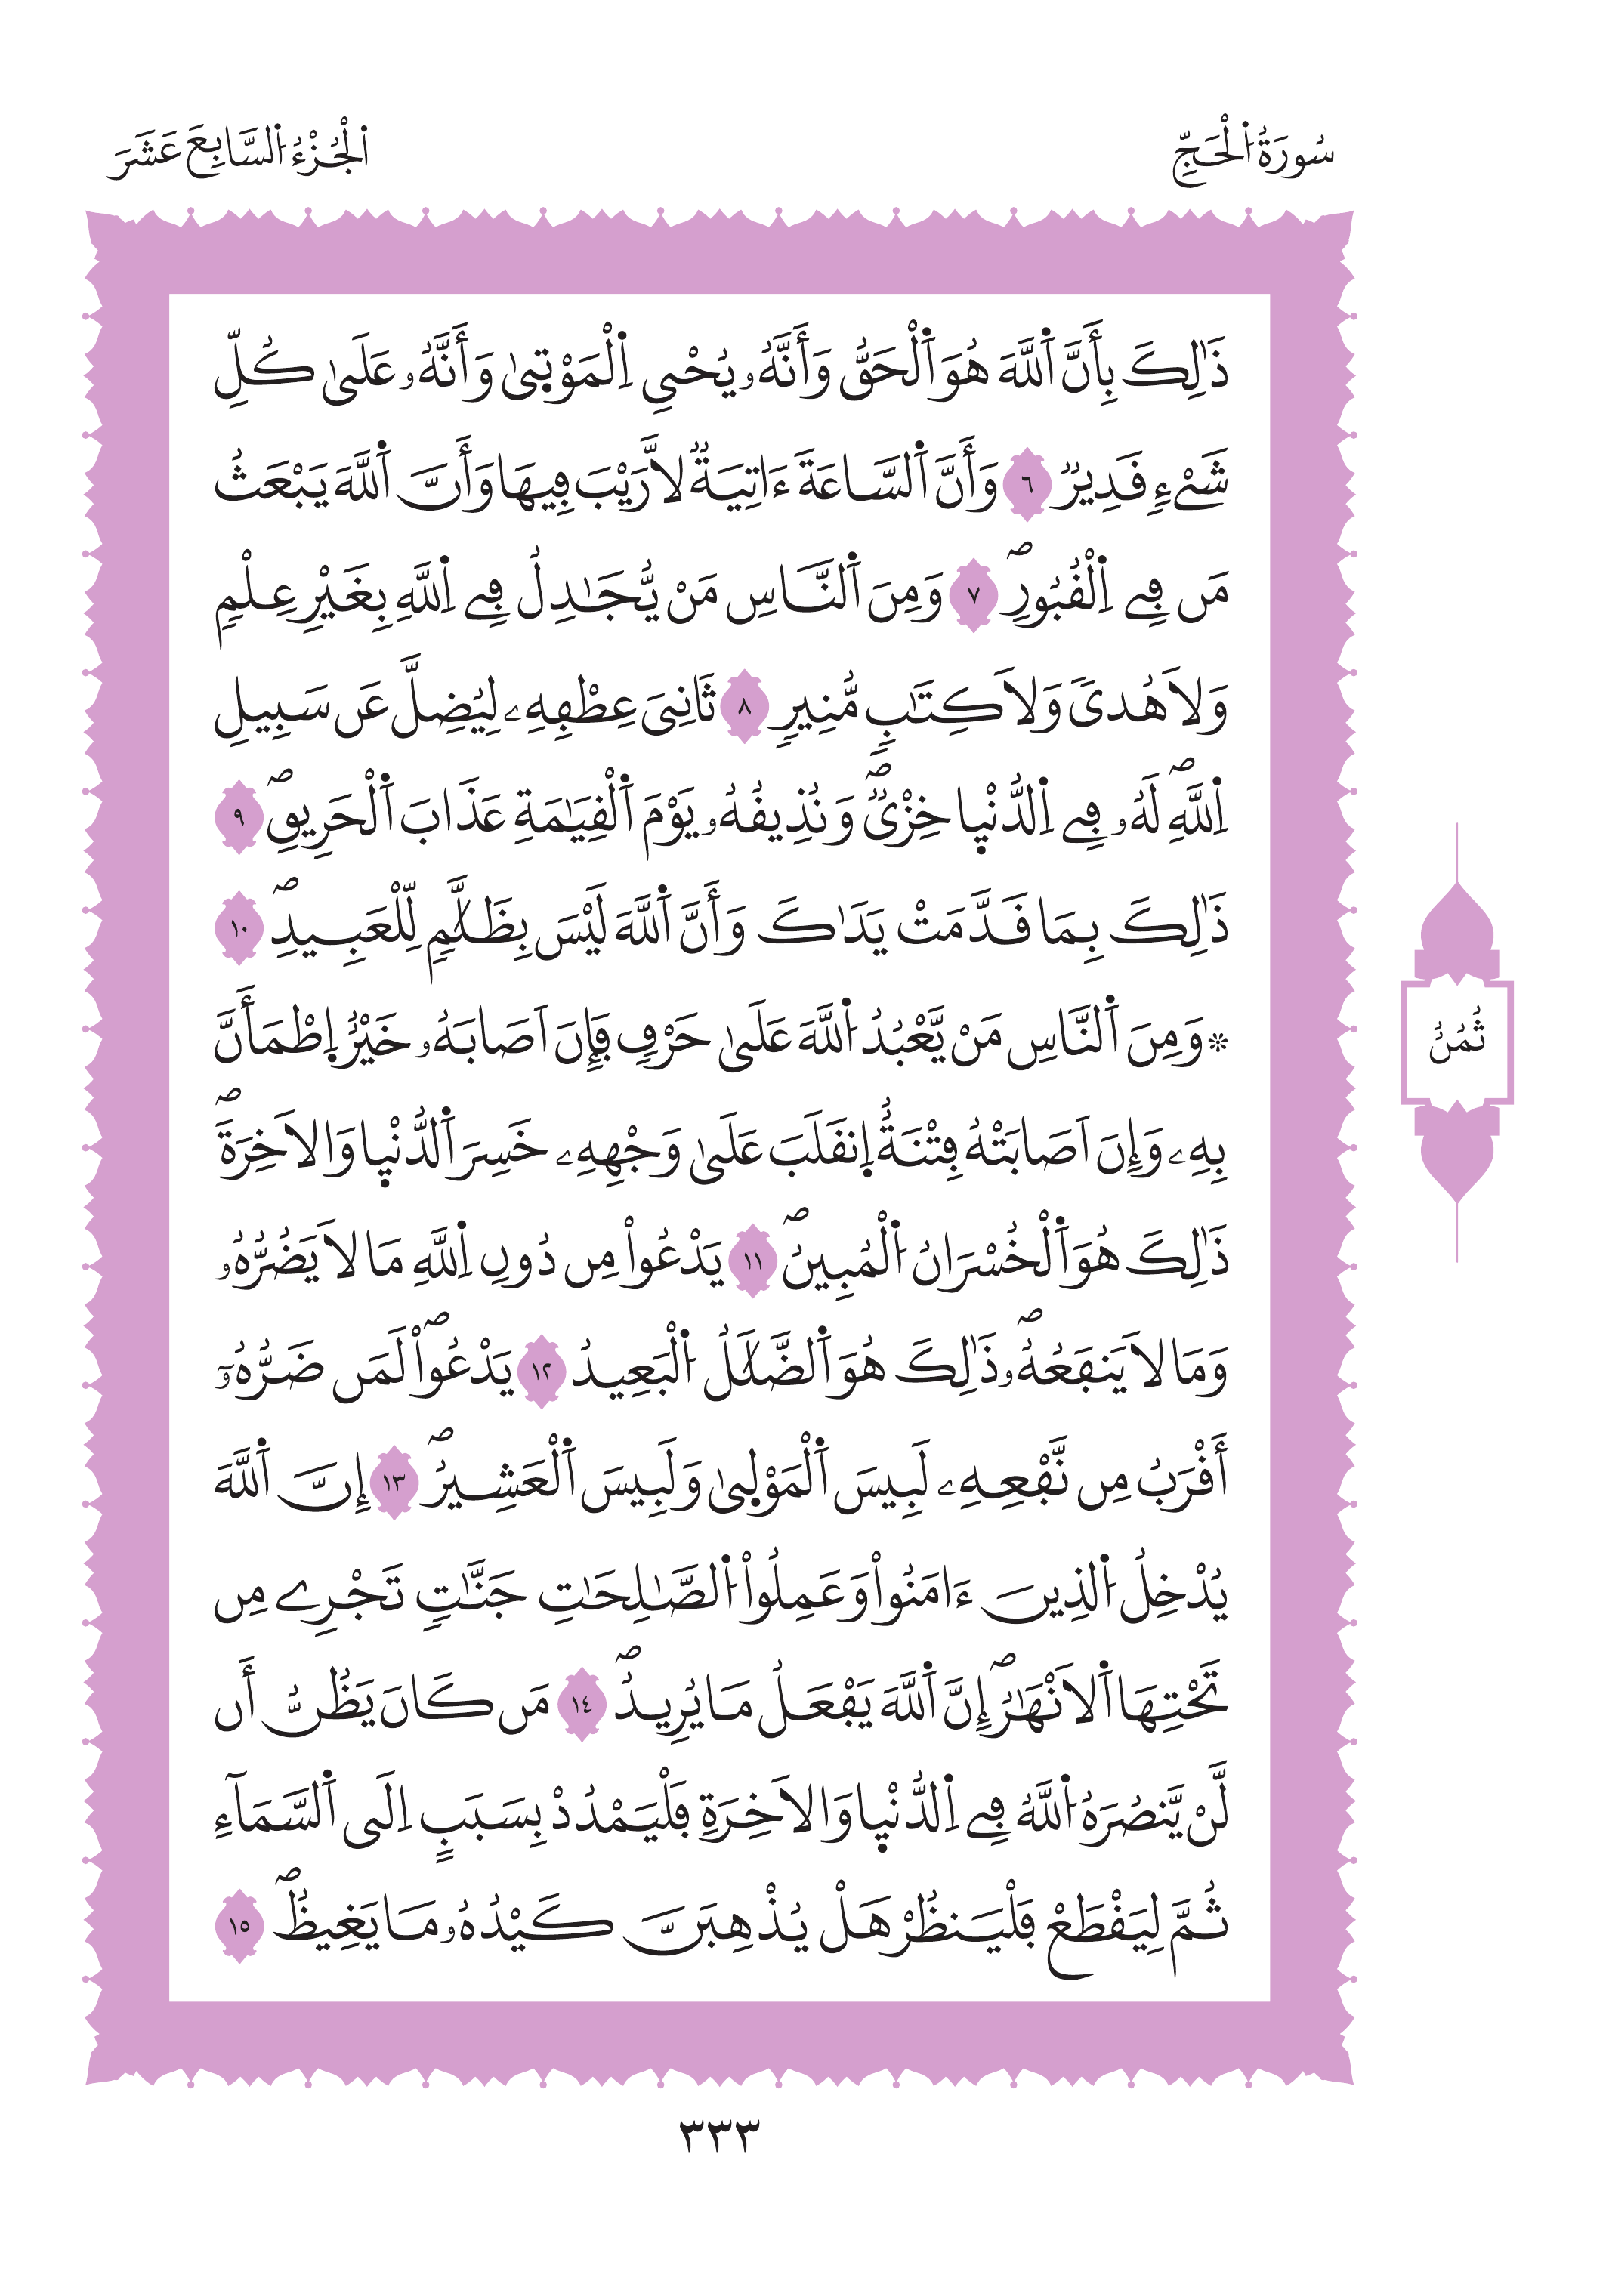 سُورَةُ اُ۬لْحَجِّ
اَ۬لْجُزْءُ اُ۬لسَّابِعَ عَشَرَ
ذَٰلِكَ بِأَنَّ اَ۬للَّهَ هُوَ اَ۬لْحَقُّ وَأَنَّهُۥ يُحْيِ اِ۬لْمَوْت۪ىٰ وَأَنَّهُۥ عَلَىٰ كُلِّ
شَےْءٖ قَدِيرٞ ٦ وَأَنَّ اَ۬لسَّاعَةَ ءَاتِيَةٞ لَّا رَيْبَ فِيهَا وَأَنَّ اَ۬للَّهَ يَبْعَثُ
مَن فِے اِ۬لْقُبُورِۖ ٧ وَمِنَ اَ۬لنَّاسِ مَنْ يُّجَٰدِلُ فِے اِ۬للَّهِ بِغَيْرِ عِلْمٖ
وَلَا هُدىٗ وَلَا كِتَٰبٖ مُّنِيرٖ ٨ ثَانِيَ عِطْفِهِۦ لِيُضِلَّ عَن سَبِيلِ
اِ۬للَّهِۖ لَهُۥ فِے اِ۬لدُّنْي۪ا خِزْيٞۖ وَنُذِيقُهُۥ يَوْمَ اَ۬لْقِيَٰمَةِ عَذَابَ اَ۬لْحَرِيقِۖ ٩
ذَٰلِكَ بِمَا قَدَّمَتْ يَدَٰكَ وَأَنَّ اَ۬للَّهَ لَيْسَ بِظَلَّٰمٖ لِّلْعَبِيدِۖ ١٠
۞وَمِنَ اَ۬لنَّاسِ مَنْ يَّعْبُدُ اُ۬للَّهَ عَلَىٰ حَرْفٖ فَإِنَ اَصَابَهُۥ خَيْرٌ اِ۪طْمَأَنَّ
بِهِۦ وَإِنَ اَصَابَتْهُ فِتْنَةٌ اِ۪نقَلَبَ عَلَىٰ وَجْهِهِۦ خَسِرَ اَ۬لدُّنْي۪ا وَالَاخِرَةَۖ
ذَٰلِكَ هُوَ اَ۬لْخُسْرَانُ اُ۬لْمُبِينُۖ ١١ يَدْعُواْ مِن دُونِ اِ۬للَّهِ مَا لَا يَضُرُّهُۥ
وَمَا لَا يَنفَعُهُۥۖ ذَٰلِكَ هُوَ اَ۬لضَّلَٰلُ اُ۬لْبَعِيدُ ١٢ يَدْعُواْۖ لَمَن ضَرُّهُۥٓ
أَقْرَبُ مِن نَّفْعِهِۦ لَبِيسَ اَ۬لْمَوْل۪ىٰ وَلَبِيسَ اَ۬لْعَشِيرُۖ ١٣ إِنَّ اَ۬للَّهَ
يُدْخِلُ اُ۬لذِينَ ءَامَنُواْ وَعَمِلُواْ اُ۬لصَّٰلِحَٰتِ جَنَّٰتٖ تَجْرِے مِن
تَحْتِهَا اَ۬لَانْهَٰرُۖ إِنَّ اَ۬للَّهَ يَفْعَلُ مَا يُرِيدُۖ ١٤ مَن كَانَ يَظُنُّ أَن
لَّنْ يَّنصُرَهُ اُ۬للَّهُ فِے اِ۬لدُّنْي۪ا وَالَاخِرَةِ فَلْيَمْدُدْ بِسَبَبٍ اِلَى اَ۬لسَّمَآءِ
ثُمَّ لِيَقْطَعْ فَلْيَنظُرْ هَلْ يُذْهِبَنَّ كَيْدُهُۥ مَا يَغِيظُۖ ١٥
ثُمُنُ
٣٣٣